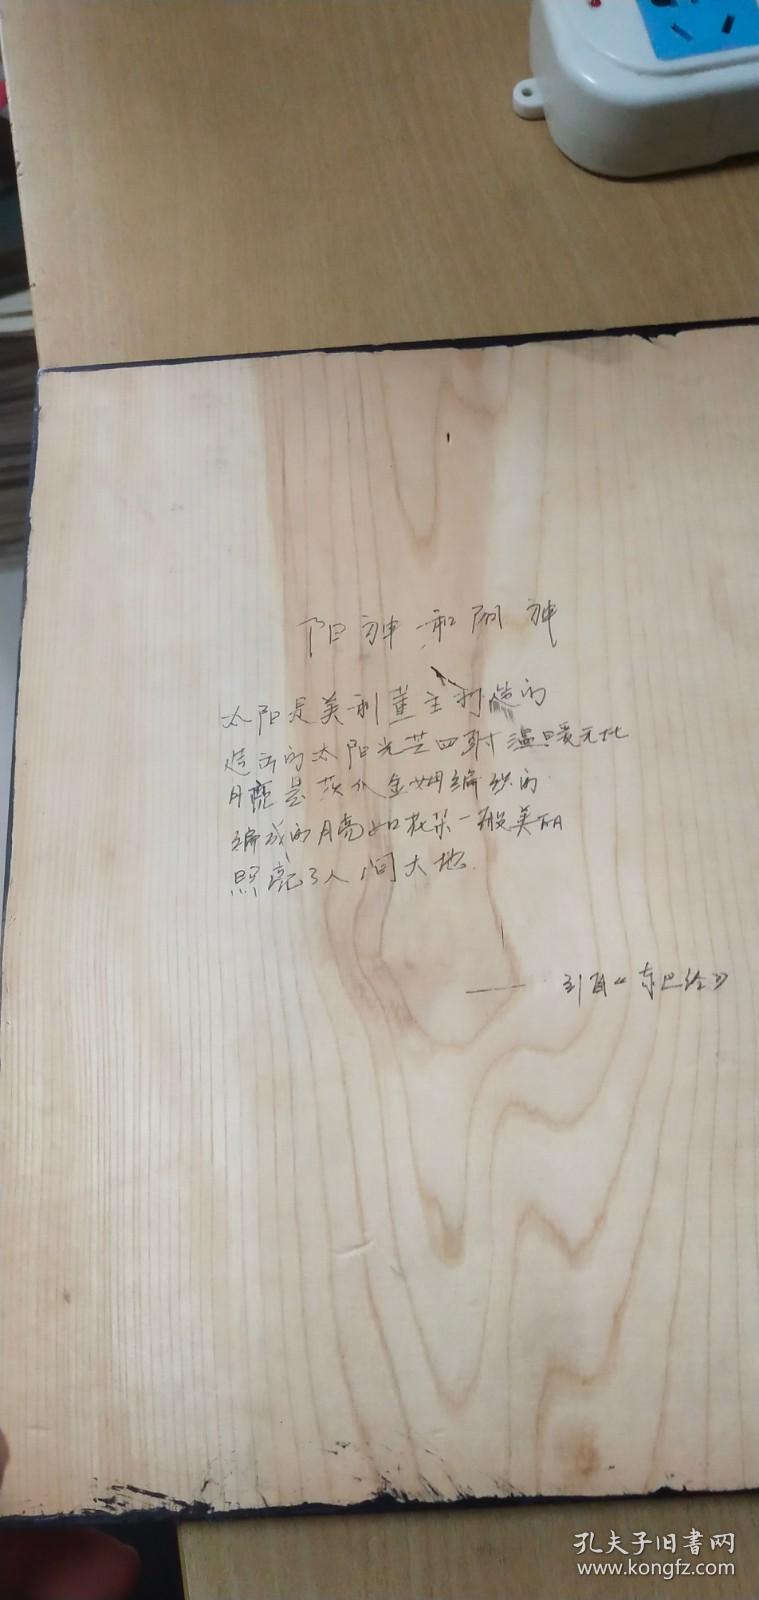 阳神和阴神
太阳是美利董主制造的
造出的太阳光芒四射温暖无比
月亮是茨爪金姆编织的
编成的月亮如花朵一般美丽
照亮了人间大地.
——引自《东巴经》
孔夫子旧書网
www.kongfz.com